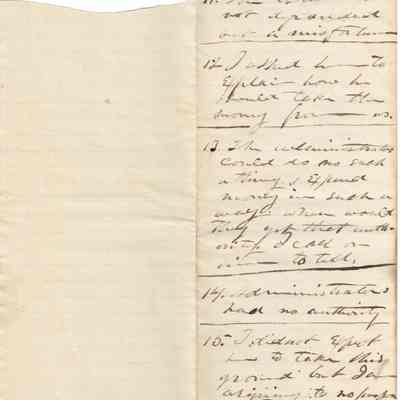 not
but a misfortune
12. I asked him to
explain how he
would take the
money from us.
13. The administrator
could do no such
a thing & expend
money in such a
way: when would
they get that auth-
ority I call on
him to tell.
14. Administrators
had no authority
15. I did not expect
him to take this
ground but I am
arguing to no purpose